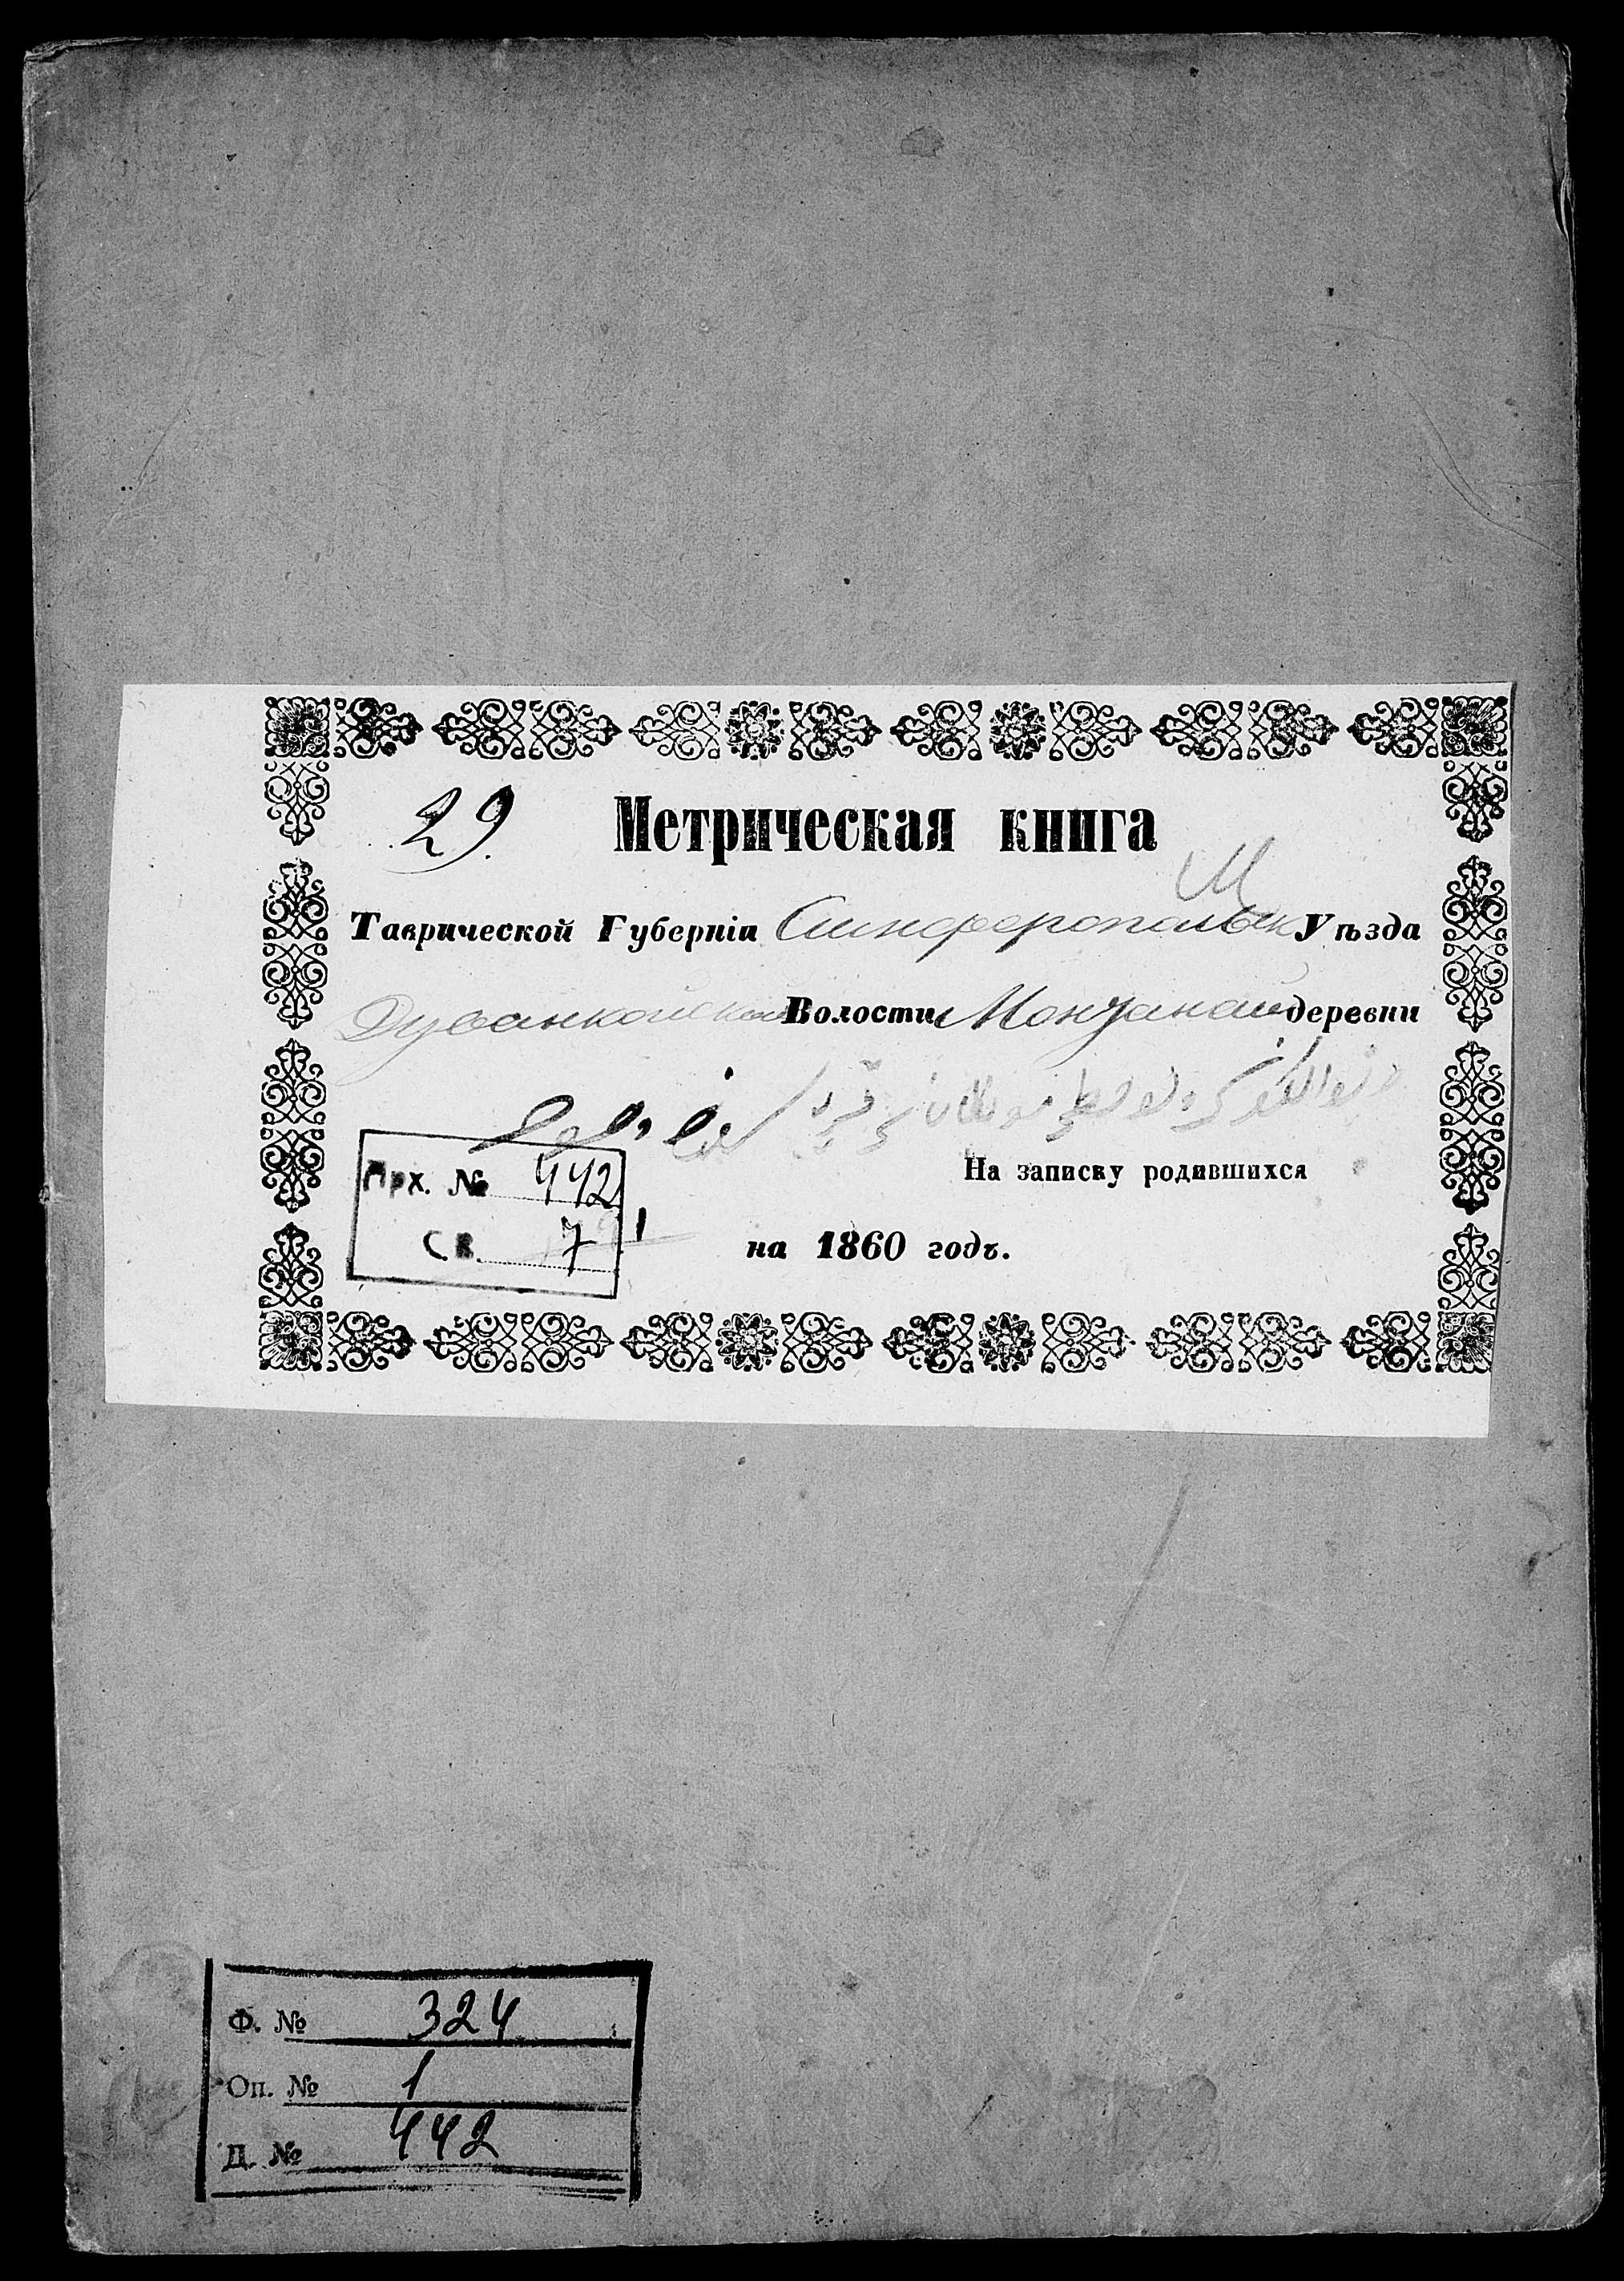 29. Метрическая книга
М
Таврической Губерніи Симферопольск Уѣзда
Дуванкойской Волости деревни
Арх. № 442
На записку родившихся
Св. 7
на 1860 годъ.
Ф. № 324
Оп. № 1
Д. № 442